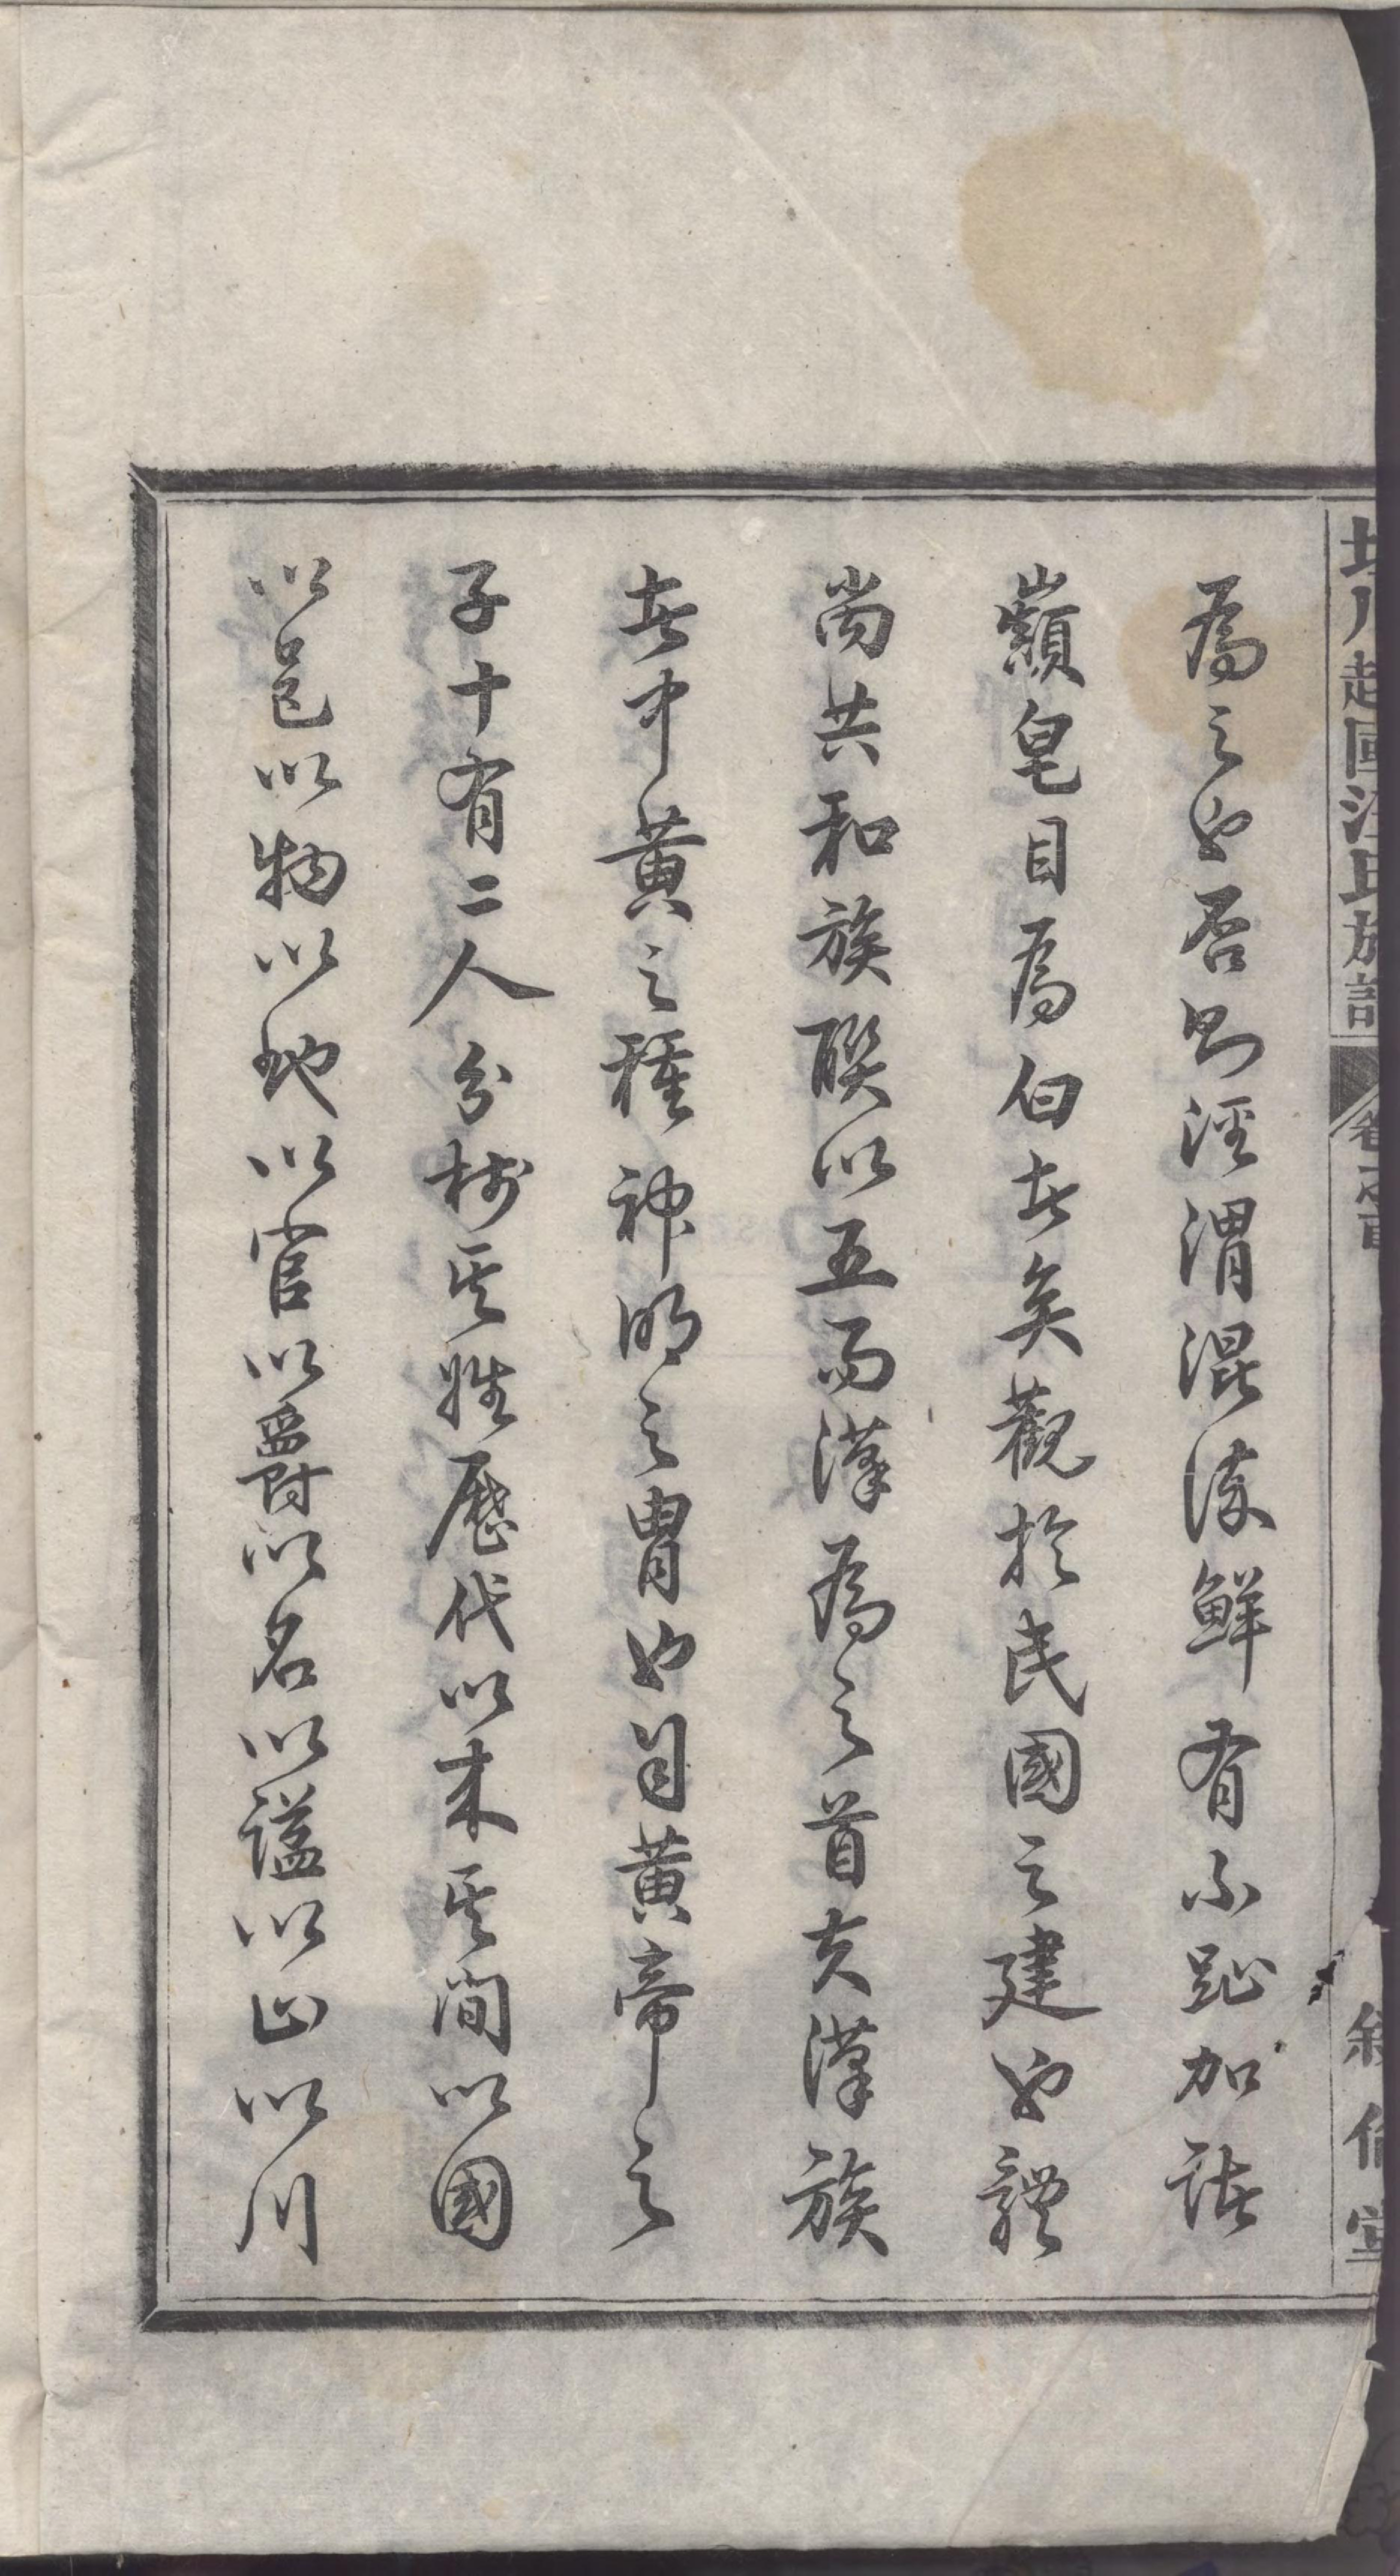 坦川越國汪氏族譜 卷之首 敘倫堂
為之也否則涇渭混淆鮮有不趾加諸
巔皂目為白者矣觀於民國之建也體
尚共和族聯以五而漢為之首夫漢族
者中黃之種神明之胄也自黃帝之
子十有二人分樹其姓歷代以來其間以國
以邑以物以地以官以爵以名以謚以山以川